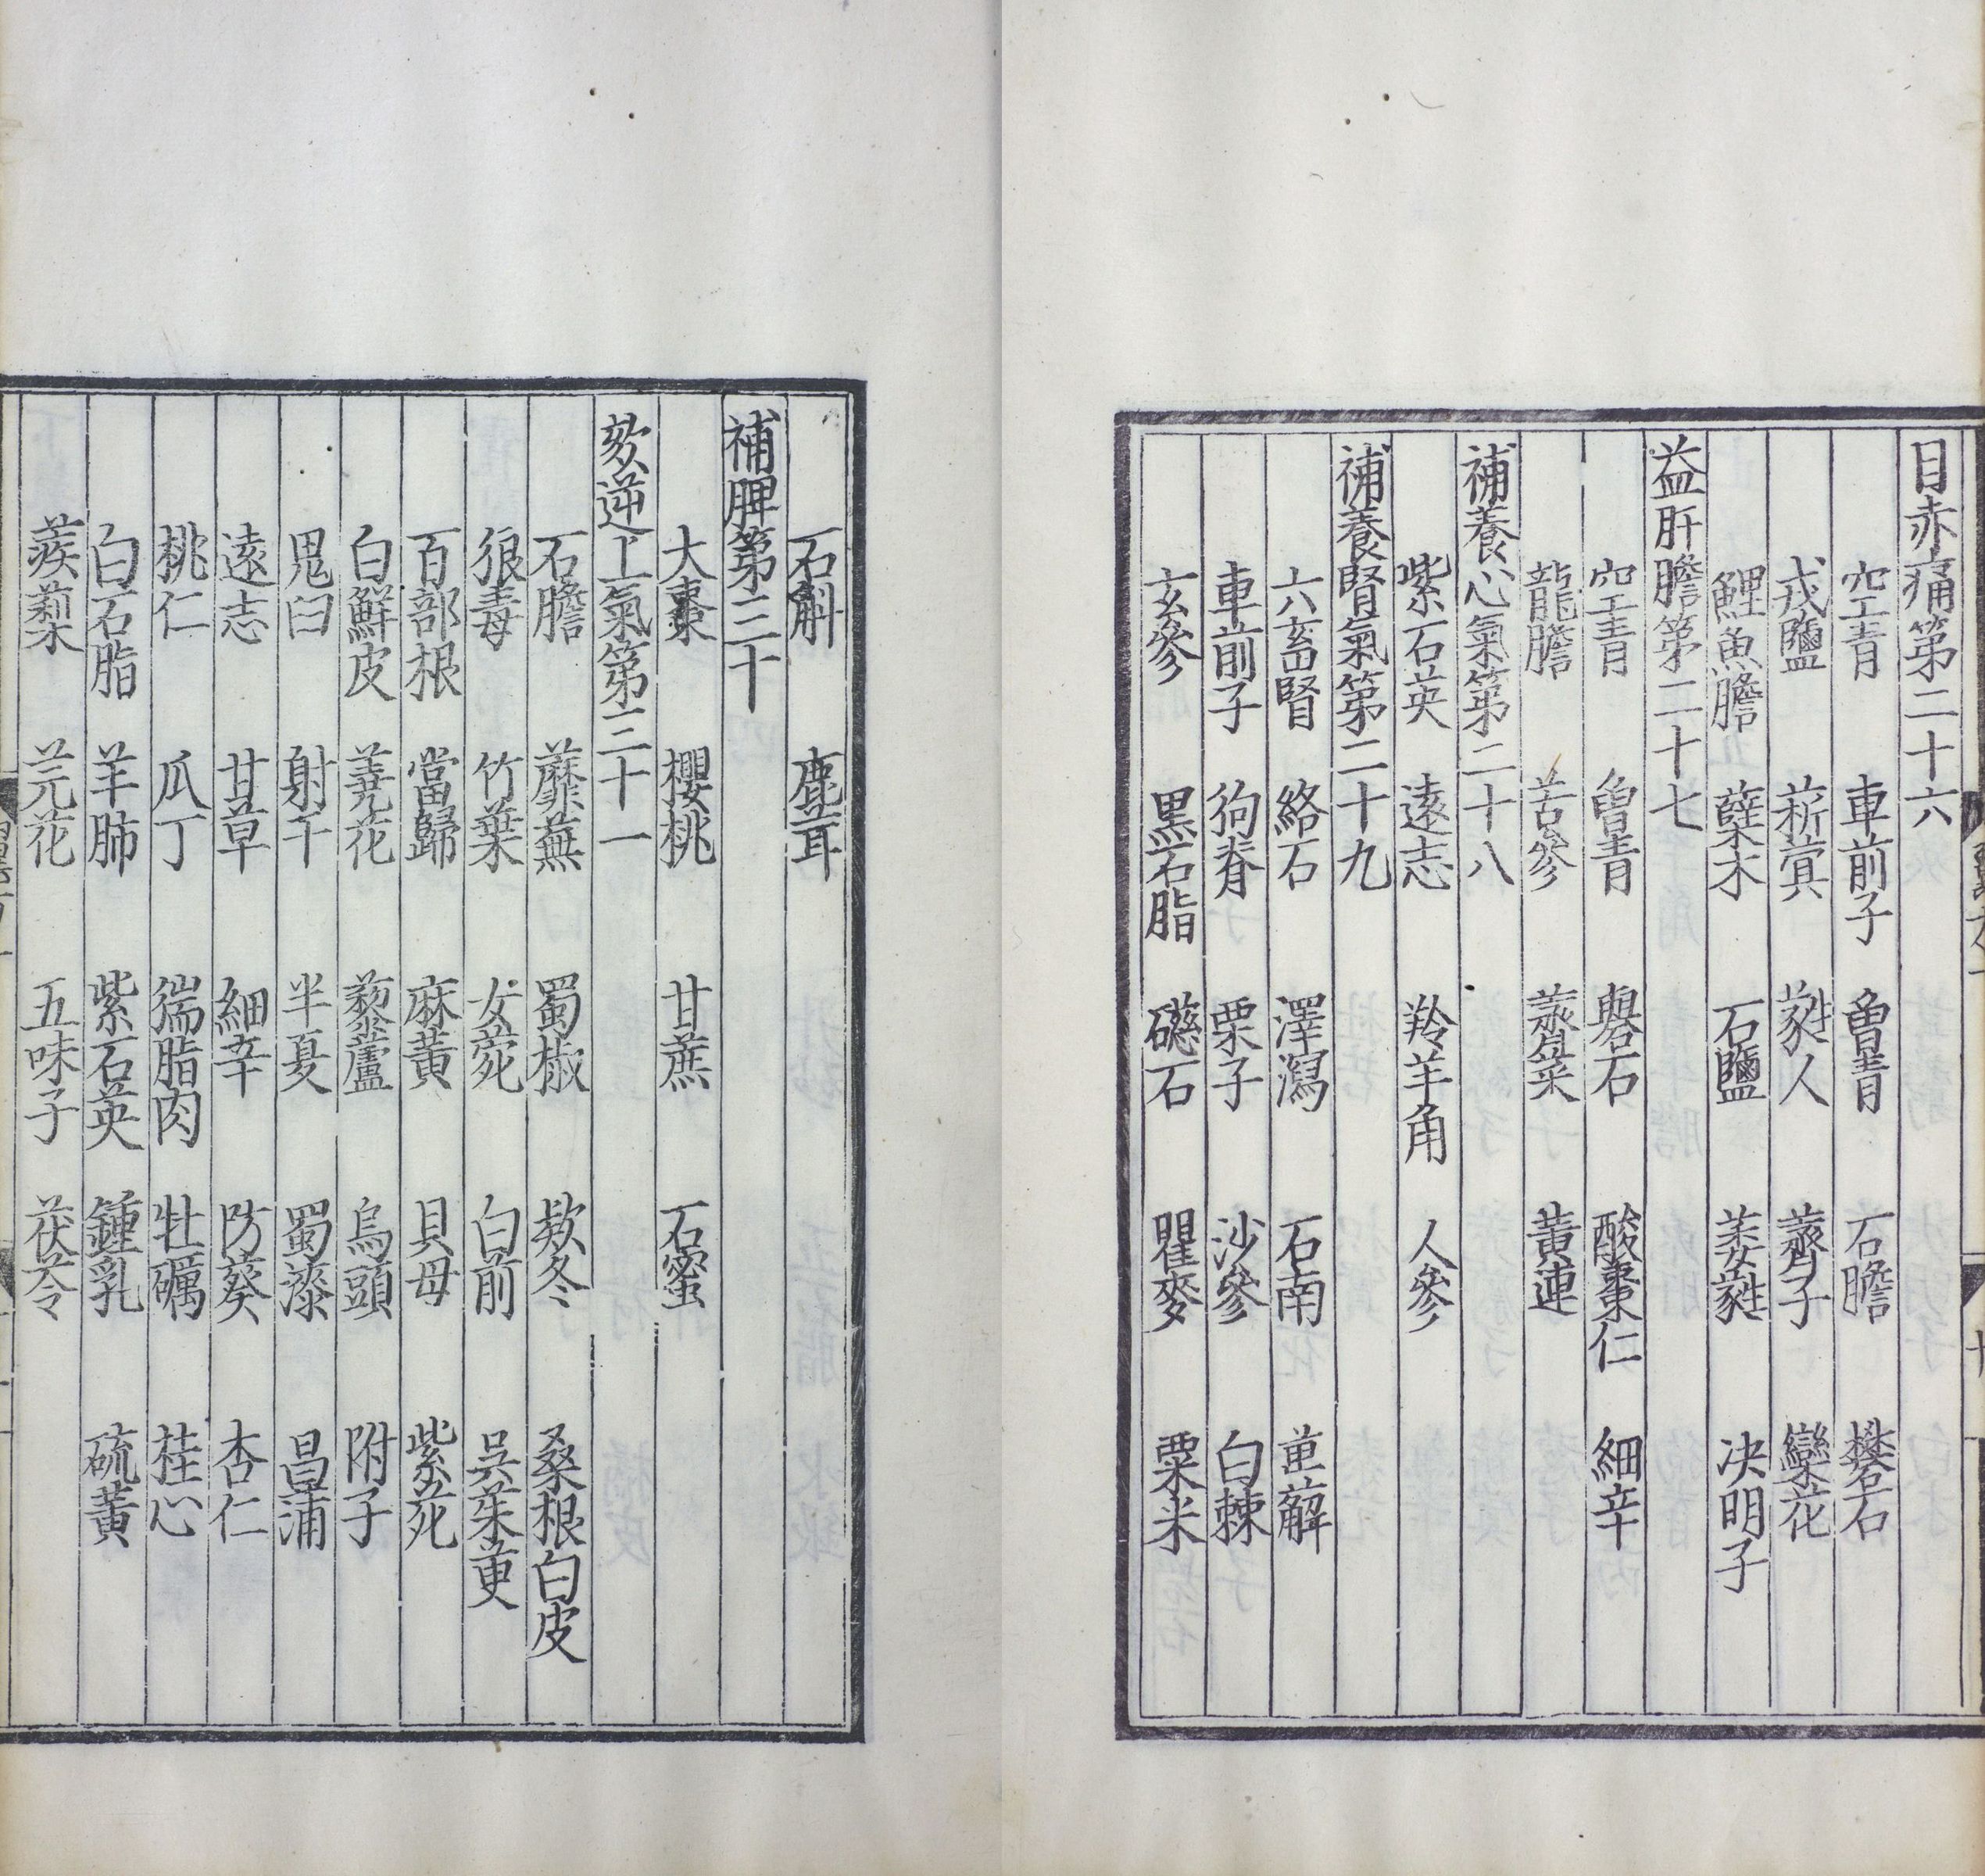 目赤痛第二十六
空青 車前子 曾青 石膽 礬石
戎鹽 菥蓂 蕤人 薺子 欒花
鯉魚膽 蘗木 石鹽 萎蕤 决明子
益肝膽第二十七
空青 曾青 礜石 酸棗仁 細辛
龍膽 苦參 薺菜 黃連
補養心氣第二十八
紫石英 遠志 羚羊角 人參
補養腎氣第二十九
六畜腎 絡石 澤瀉 石南 萆薢
車前子 狗脊 栗子 沙參 白棘
玄參 黑石脂 礠石 瞿麥 粟米
石斛 鹿茸
補脾第三十
大棗 櫻桃 甘蔗 石蜜
欬逆上氣第三十一
石膽 蘼蕪 蜀椒 欵冬 桑根白皮
狼毒 竹葉 女菀 白前 吳茱萸
百部根 當歸 麻黃 貝母 紫菀
白鮮皮 蕘花 藜蘆 烏頭 附子
鬼臼 射干 半夏 蜀漆 昌蒲
遠志 甘草 細辛 防葵 杏仁
桃仁 瓜丁 猯脂肉 牡礪 桂心
白石脂 羊肺 紫石英 鍾乳 硫黃
蒺蔾 芫花 五味子 茯苓